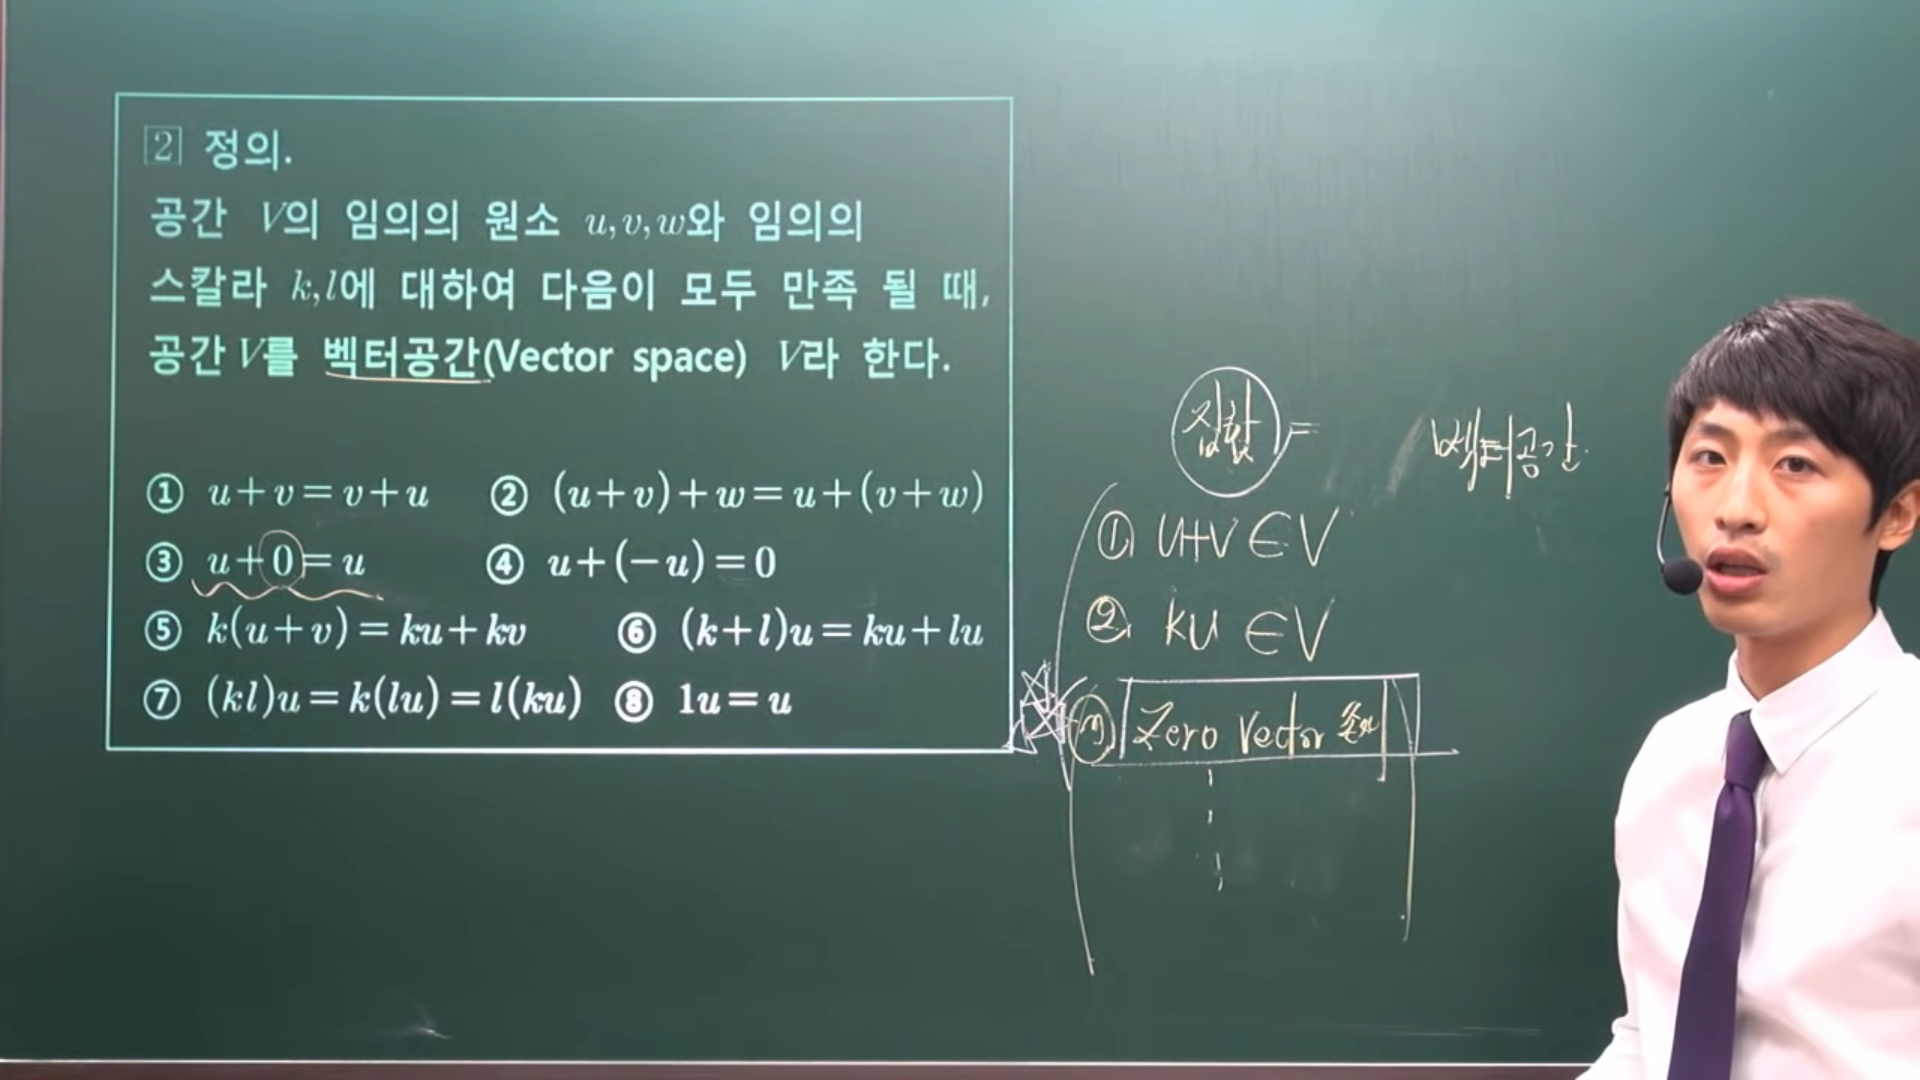 2 정의.
공간 V의 임의의 원소 u, v, w와 임의의
스칼라 k, l에 대하여 다음이 모두 만족 될 때,
공간 V를 벡터공간(Vector space) V라 한다.
① u+v=v+u ② (u+v)+w=u+(v+w)
③ u+0=u ④ u+(-u)=0
⑤ k(u+v)=ku+kv ⑥ (k+l)u=ku+lu
⑦ (kl)u=k(lu)=l(ku) ⑧ 1u=u
집합= 벡터공간.
① u+v∈V
② ku∈V
③ Zero Vector 존재